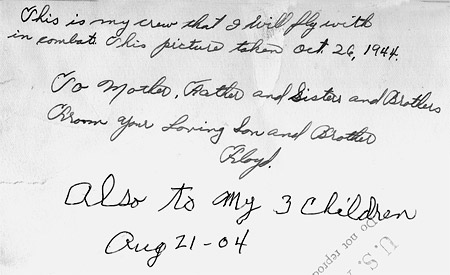 This is my crew that I will fly with
in combat. This picture taken Oct. 26, 1944.
To Mother, Father and Sisters and Brothers
From your Loving Son and Brother
Floyd.
Also to My 3 Children
Aug 21-04
Do not reprod
U. S.